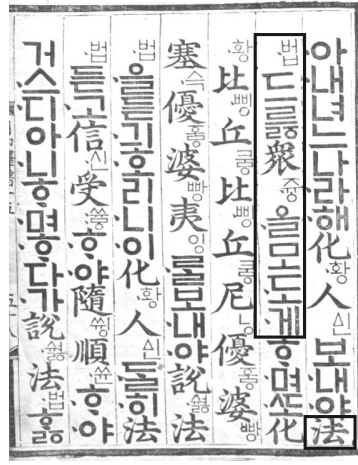 아내녀느나라해化황人ᅀᅵᆫ보내야法
법드르ᇙ衆즁을모도게ᄒᆞ며ᄯᅩ化
황比삥丘쿠ᇢ比삥丘쿠ᇢ尼닝優ᅙᅮᇢ婆빵
塞ᄉᆡᆨ優ᅙᅮᇢ婆빵夷잉ᄅᆞᆯ보내야說ᄉᆑᇙ法
법을듣긔호리니이化황人ᅀᅵᆫᄃᆞᆯ히法
법듣고信신受쓔ᇢᄒᆞ야隨쓍順쓘ᄒᆞ야
거스디아니ᄒᆞ며ᄒᆞ다가說ᄉᆑᇙ法법ᄒᆞᇙ